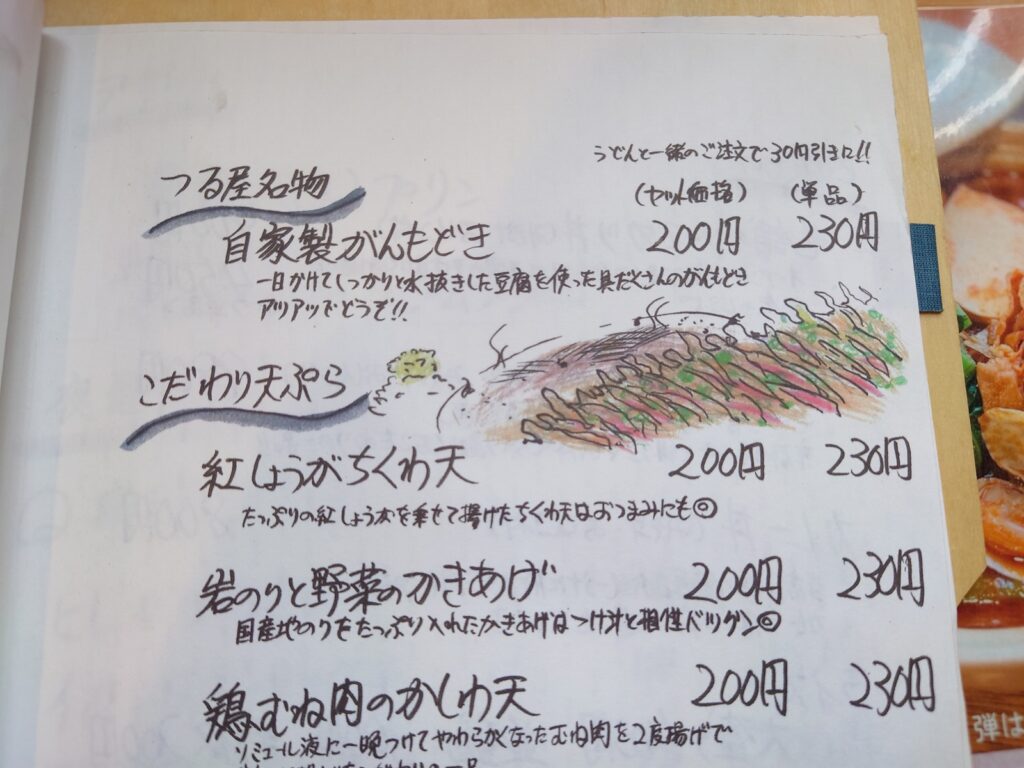 うどんと一緒のご注文で30円引きに!!
つる屋名物
(セット価格) (単品)
自家製がんもどき 200円 230円
一日かけてしっかりと水抜きした豆腐を使った具だくさんのがんもどき
アツアツでどうぞ!!
こだわり天ぷら
紅しょうがちくわ天 200円 230円
たっぷりの紅しょうがを乗せて揚げたちくわ天はおつまみにも◎
岩のりと野菜のかきあげ 200円 230円
国産地のりをたっぷり入れたかきあげはつけ汁と相性バツグン◎
鶏むね肉のかしわ天 200円 230円
ソミュール液に一晩つけてやわらかくなったむね肉を2度揚げで
弾は